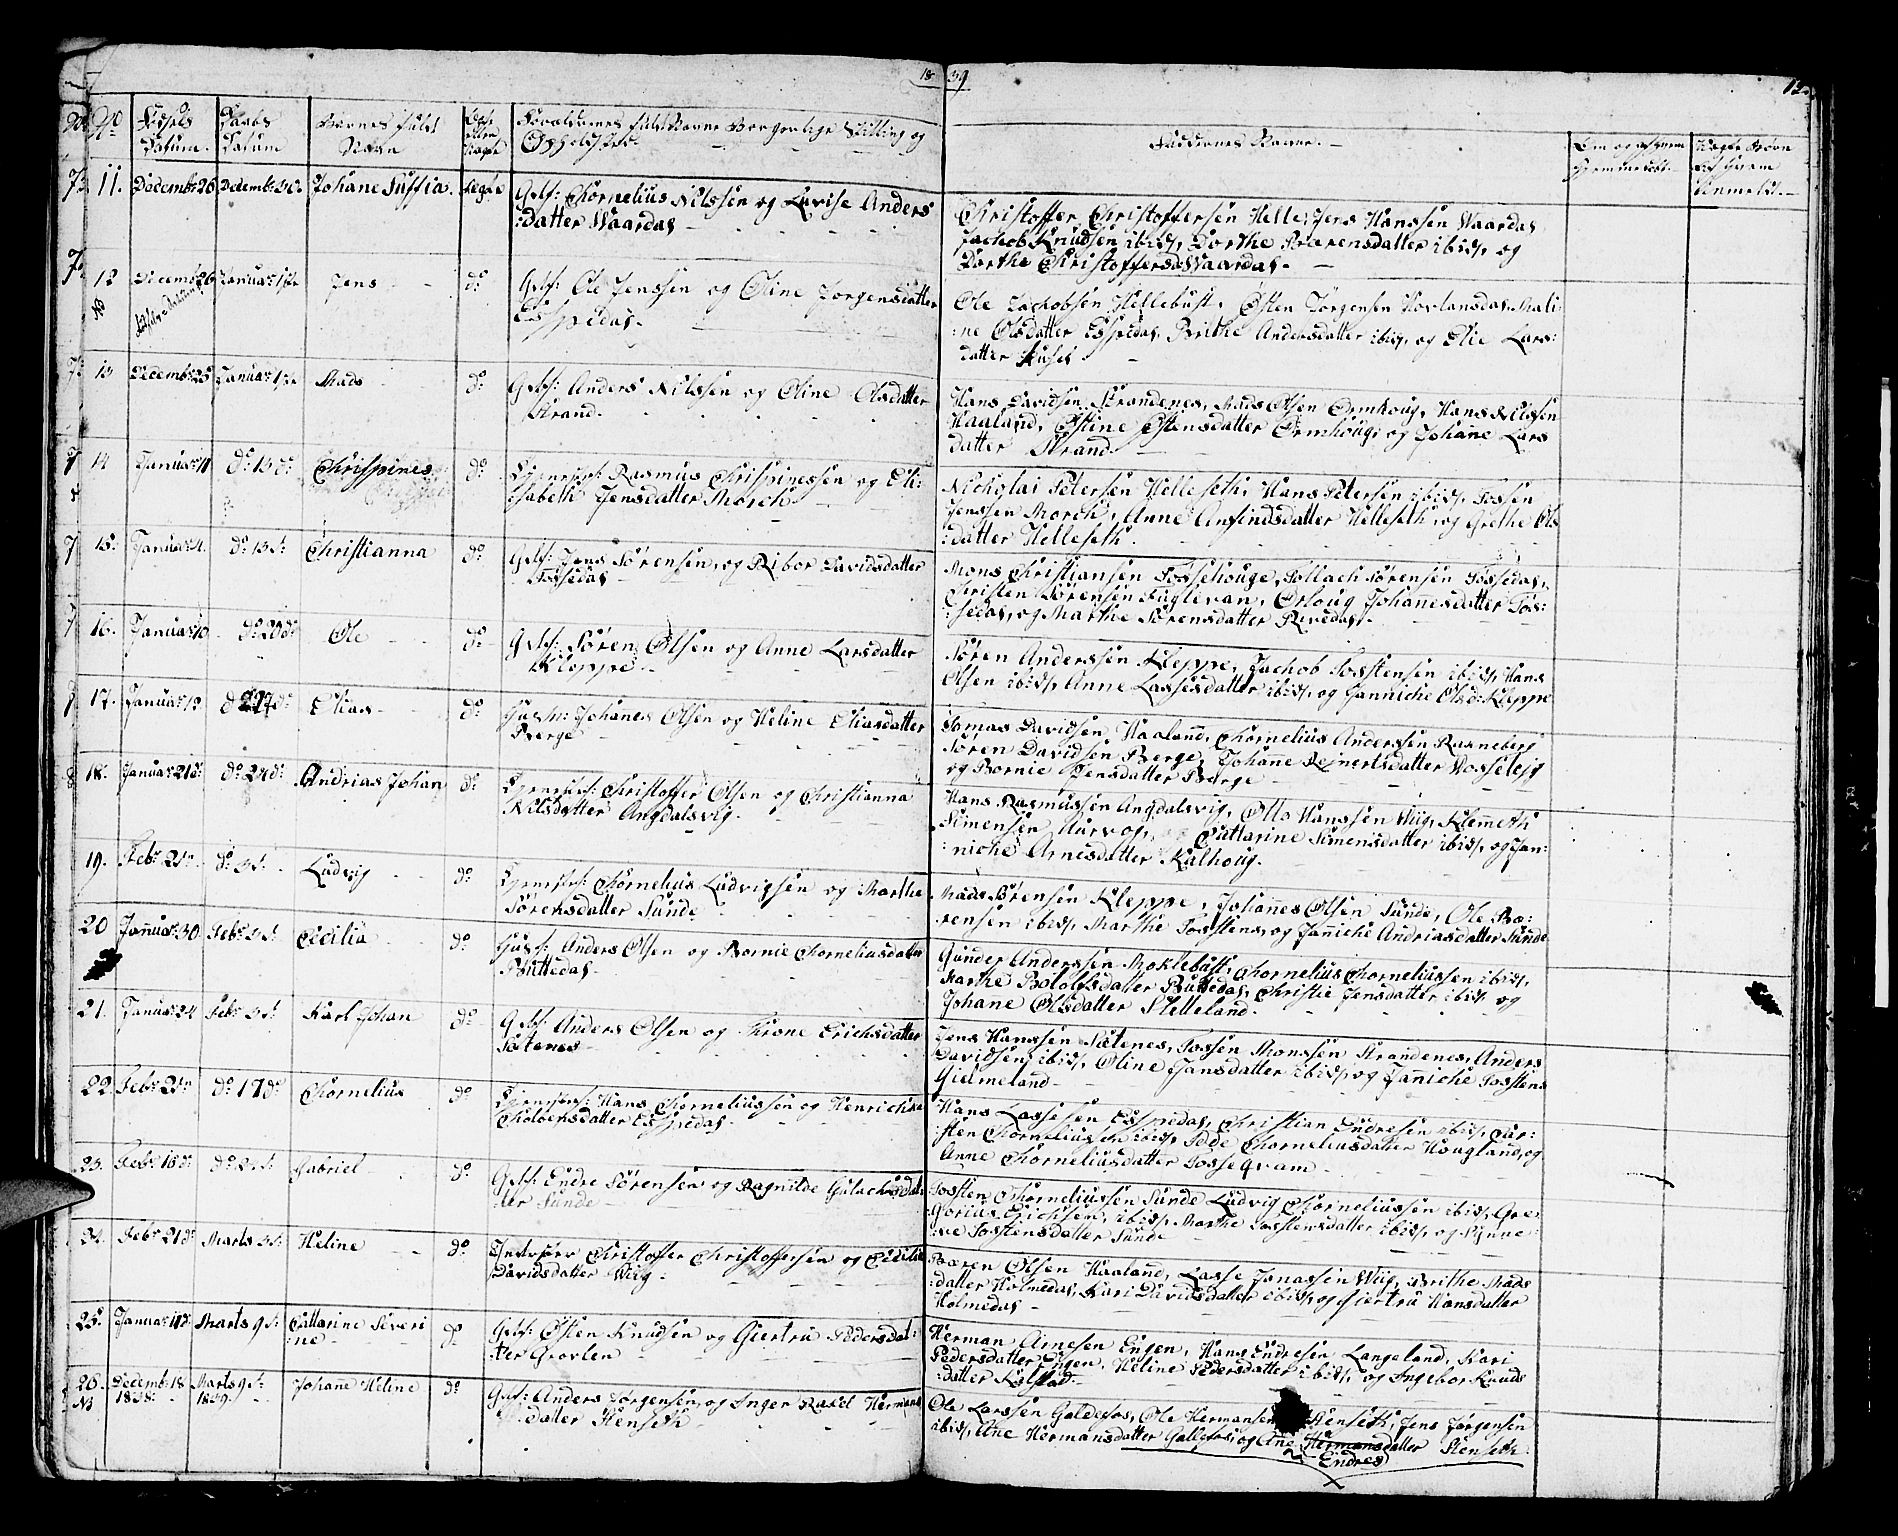 18 39
12.
No Fødsels Datum. Daabs Datum Barnes fulde Navn Forældrenes fulde Navne Borgerlige Stilling og Opholdsted. Faddernes Navne.
11. Decembr 26 Decembr 30 Johane Suffia. Ægte Gbf: Chornelius Nilssen og Lovise Anders
:datter Waardas
Christoffer Christoffersen Helle, Jens Hanssen Waardas,
Jachob Knudsen ibid, Dorthe Børensdatter ibid, og
Dorthe Christoffersd Waardas.
12 Decembr 26 Januar 1ste Jens do Gbf: Ole Jenssen og Oline Jørgensdatter
Espedas.
NB
Ole Jachobsen Hellebust, Østen Jørgensen Hovlansdas, Mali:
:ne Olsdatter Espedas, Brithe Andersdatter ibid, og Elie Lars:
datter Huses
13 Decembr 25 Januar 1ste Mads do Gbf: Anders Nilssen og Oline Olsdatter
Strand.
Hans Davidsen Strandenes, Mads Olsen Ormhoug, Hans Nilssen
Haaland, Østine Østensdatter Ormhoug, og Johane Lars
datter Strand.
14 Januar 11 do 13 do Chrispines do Tjenestef: Rasmus Chrispinessen og Eli:
:sabeth Jensdatter Morch.
Nicholai Petersen Helleseth, Hans Petersen ibid, Tosten
Jenssen Morch, Anne Anfindsdatter Helleseth, og Grethe Ols
:datter Helleseth.
15. Januar 4. do 13 do Christianna do Gbf: Jens Sørensen, og Ribor Davidsdatter
Tossedas
Mons Christiansen Tossehouge, Tollach Sørensen Tossedas,
Christen Sørensen Fuglevan, Orloug Johannesdatter Tos:
:sedas, og Marthe Sørensdatter Revedas.
16. Januar 10 do 20 do Ole do Gbf: Søren Olsen og Anne Larsdatter
Kleppe.
Søren Anderssen Kleppe, Jachob Tostensen ibid, Hans
Olsen ibid, Anne Lassesdatter ibid, og Janniche Olsd: Kleppe
17. Januar 13 do 27 do Elias do Gusm: Johanes Olsen og Heline Eliasdatter
Berge
Tomas Davidsen Haaland, Chornelius Anderssen Ravneberg
Søren Davidsen Berge, Johane Rejnertsdatter Vosselejg
og Bornie Jensdatter Berge
18. Januar 21 do do 27 do Andrias Johan do Tjenestef: Christoffer Olsen og Christianna
Nilsdatter Angdalsvig.
Hans Rasmussen Angdalsvig, Otto Hanssen Wiig, Klemeth
Simensen Aurvog, Cattarine Simensdatter ibid, og Jan:
:niche Arnesdatter Kalhoug.
19. Febr 2den do 3die Ludvig do Tjenestef: Chornelius Ludvigsen og Marthe
Sørensdatter Sunde
Mads Børensen Kleppe, Johannes Olsen Sunde, Ole Bø:
rensen ibid, Marthe Tostens, og Janiche Andriasdatter Sunde
20 Januar 30 Febr 3die Cecilia do Gusf: Anders Olsen og Bornie Chorneliusdatter
Buttedas.
Gunder Anderssen Moklebust, Chornelius Chorneliussen ibid,
Marthe Bololfsdatter Buttedas, Christie Jensdatter ibid, og
Johane Olsdatter Sletteland.
21. Januar 24 Febr 3die Karl Johan do Gbf: Anders Olsen og Trone Erichsdatter
Sætenes
Jens Hanssen Sætenes, Tosten Monssen Strandenes, Anders
Davidsen ibid, Oline Jansdatter ibid, og Janniche Tostens
Gielmeland
22. Febr 2den do 17 do Chornelius do Tjenestef: Hans Chorneliussen og Henrichke
Choloensdatter Espedas.
Hans Lassesen Espedas, Christian Endresen ibid, Tor:
:sten Chorneliussen ibid, Tode Chorneliusdatter Hougland, og
Anne Chorneliusdatter Tosseqvam
23. Febr 16 do Gabriel do Gbf: Endre Sørensen og Ragnilde Gulachsdat
:ter Sunde
Tosten Chorneliussen Sunde Ludvig Chorneliussen ibid, Gre:
:gorius Erichsen, ibid, Marthe Tostensdatter ibid, og Synne:
:ve Tostensdatter Sunde
24. Febr 21 do Marts 3die Heline do Christoffer Christoffersen og Cecilie
Davidsdatter Wiig.
Børen Olsen Haaland, Lasse Jonassen Wiig, Brithe Mads
:datter Holmedas, Kari Davidsdatter ibid, og Giertru Hansdatter
Holmedas
25. Januar 17 Marts 9de Cattarine Severi
:ne do Gbf: Østen Knudsen og Giertru Pedersdat:
:ter Grovlen
Herman Arnesen Engen, Hans Endresen Langeland, Kari
Pedersdatter Engen, Heline Pedersdatter ibid, og Ingebor Knuds
:datter Kalstad
26. Decemb: 18 Marts 9de Johane Heline do Gbf: Anders Jørgensen, og Inger Rakel Hermans
NB 1838. 1839. :datter Stenseth
Ole Larssen Galdefos, Ole Hermansen Stenseth, Jens Jørgensen
ibid, Ane Hermansdatter Galdefos, og Ane Hermansdatter Stenseth
Endres